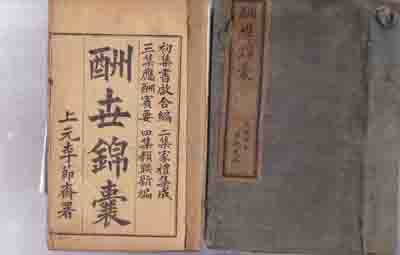 初集書啟合編 二集家禮集成
三集應酬寶要 四集類聯新編
酬世錦囊
上元李節齋署
酬世錦囊